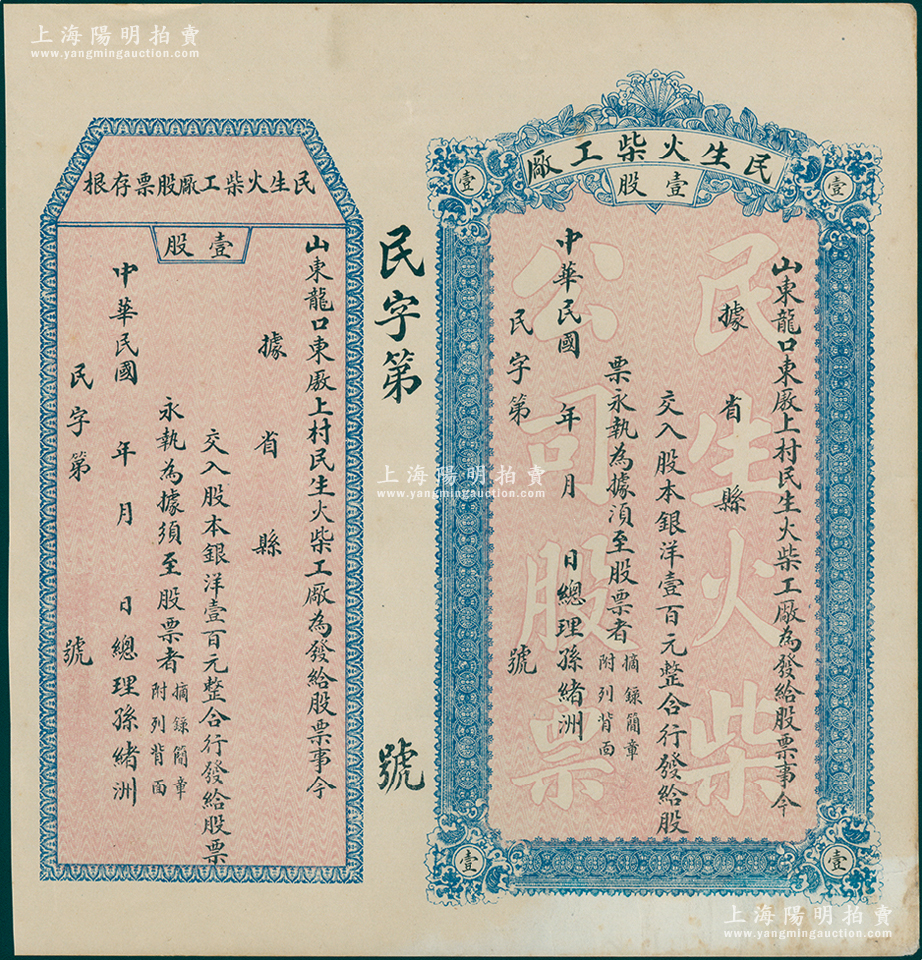 上海陽明拍賣
www.yangmingauction.com
民生火柴工廠
壹股
壹
壹
壹
壹
民生火柴
公司股票
山東龍口東廒上村民生火柴工廠為發給股票事今
據 省 縣
交入股本銀洋壹百元整合行發給股
票永執為據湏至股票者
摘錄簡章
附列背面
中華民國 年 月 日總理孫緒洲
民字第 號
民字第 號
民生火柴工廠股票存根
壹股
山東龍口東廒上村民生火柴工廠為發給股票事今
據 省 縣
交入股本銀洋壹百元整合行發給股票
永執為據須至股票者
摘錄簡章
附列背面
中華民國 年 月 日總理孫緒洲
民字第 號
上海陽明拍賣
www.yangmingauction.com
上海陽明拍賣
www.yangmingauction.com